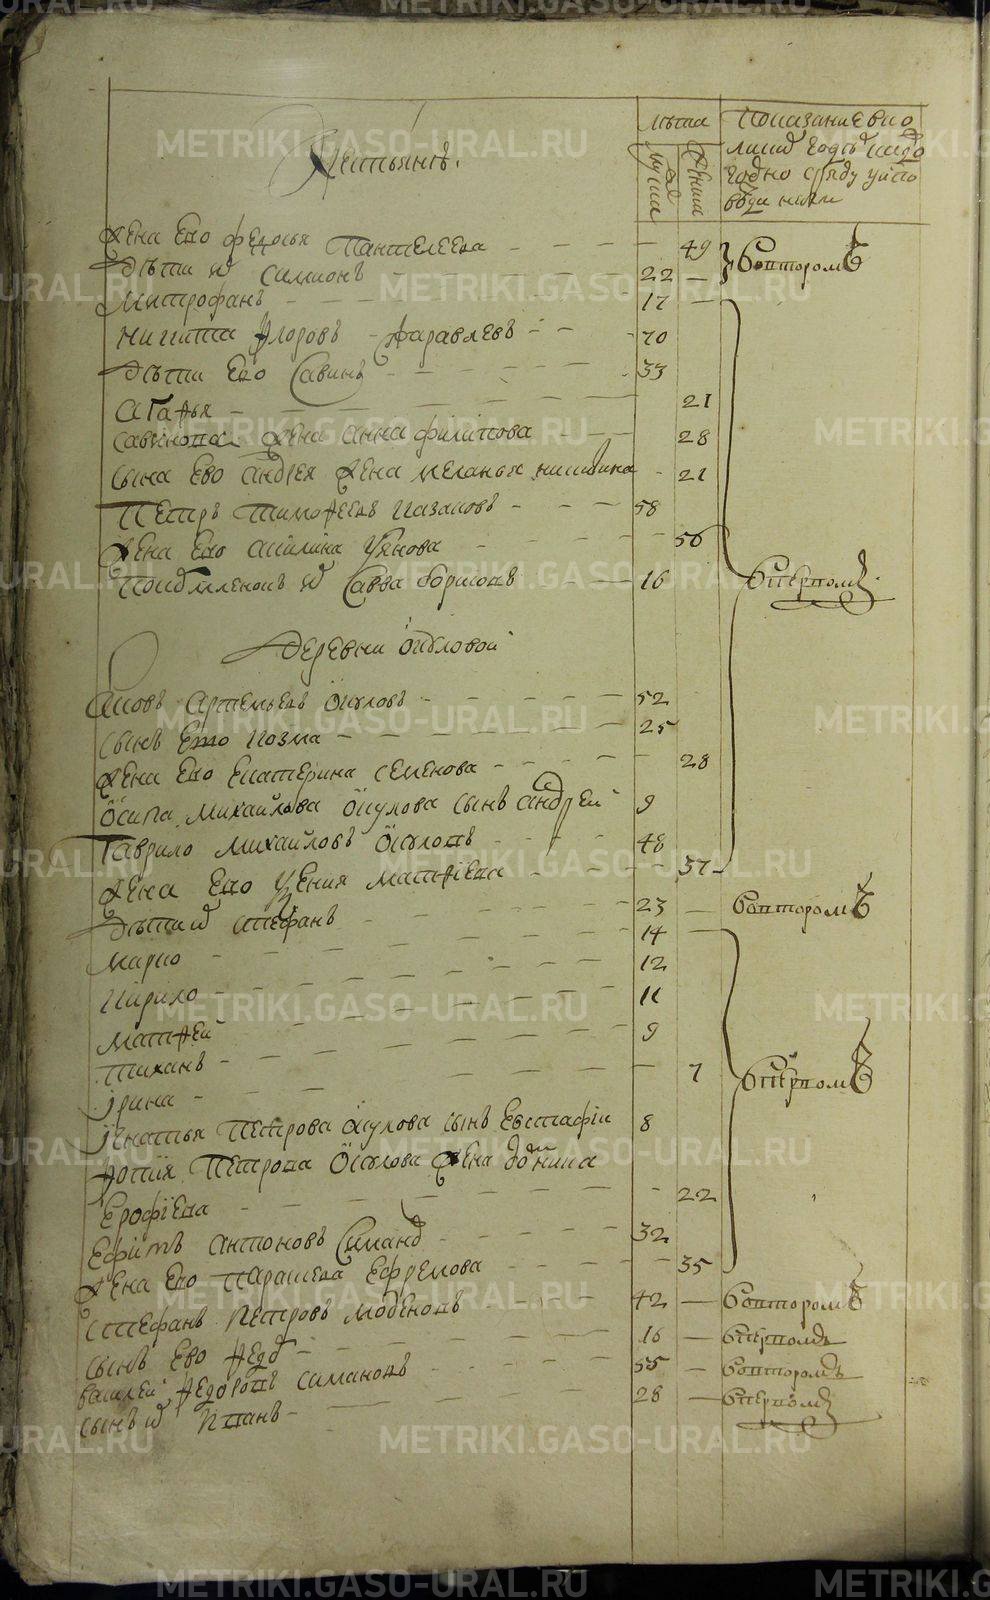 Крестьянъ.
лѣта
мужска
женска
Показание кто
коликъ годъ
годно сряду у испо
веди не были
Жена Ево Федосья Пантелеева 49
въторомъ
Дѣти и Симионъ 22
Митрофанъ 17
Никита Флоровъ Журавлевъ 70
Дѣти Ево Савинъ 33
Агафья 21
Савинова Жена Анна Филипова 28
Сына Ево Андрея Жена Меланья Никитина 21
Петръ Тимофеевъ Казаковъ 58
Жена Ево Акилина 56
Савва Борисовъ 16
въпервомъ
Деревни Окуловой
Яковъ Артемьевъ Окуловъ 52
Сынъ Ево Козма 25
Жена Ево Екатерина Семенова 28
Осипа Михайлова Окулова Сынъ Андрей 9
Гаврило Михайловъ Окуловъ 48
Жена Ево Ксения Матфiева 37
Дѣти Стефанъ 23
въторомъ
Марко 14
Кирило 12
Матфей 11
Тиханъ 9
Iрина 7
въпервомъ
Iгнатья Петрова Окулова Сынъ Евстафiи 8
Фотiя Петрова Окулова Жена Домника
Ерофiева 22
Ефимъ Антоновъ 32
Жена Ево Парасковья Ефремова 35
Стефанъ Петровъ 42 въторомъ
Сынъ Ево Федоръ 16 въпервомъ
Василей Федоровъ Симановъ 55 въторомъ
Сынъ Иванъ 28 въпервомъ
METRIKI.GASO-URAL.RU